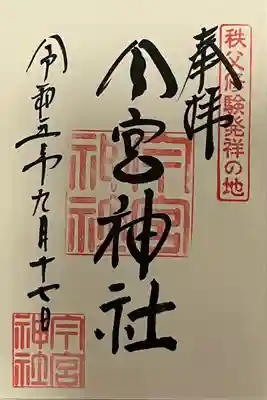 秩父修験発祥の地
奉拝
今宮神社
今宮神社
令和五年九月十七日
今宮神社